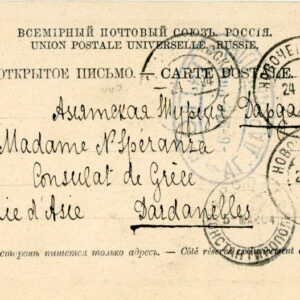 ВСЕМІРНЫЙ ПОЧТОВЫЙ СОЮЗЪ. РОССІЯ.
UNION POSTALE UNIVERSELLE. RUSSIE.
ОТКРЫТОЕ ПИСЬМО. — CARTE POSTALE.
Азиятская Турція Дарда
Madame N. Spéranza
Consulat de Grèce
ie d'Asie Dardanelles
сторонѣ пишется только адресъ. — Côté réservé exclusivement
НОВОЧЕ
24
НОВО